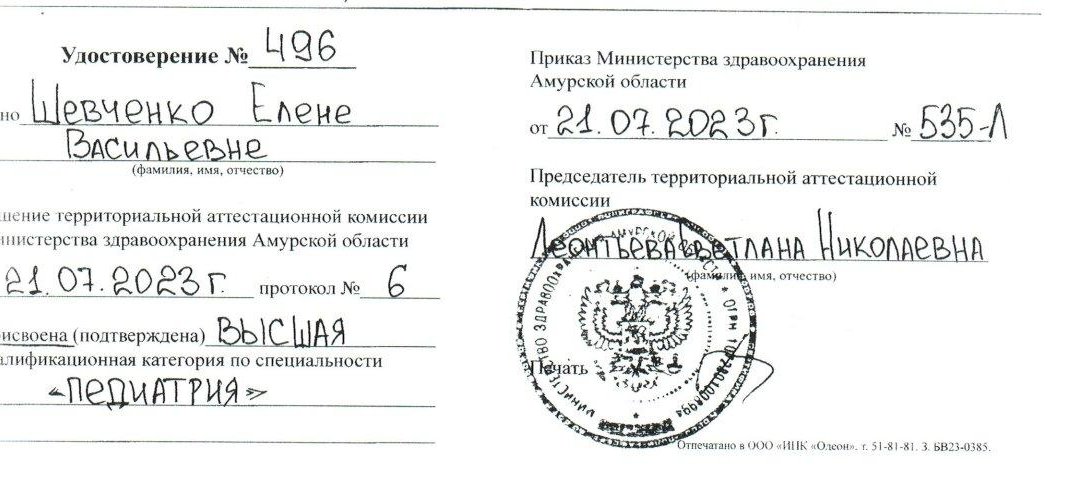 Удостоверение № 496
но Шевченко Елене
Васильевне
(фамилия, имя, отчество)
шение территориальной аттестационной комиссии
инистерства здравоохранения Амурской области
21.07.2023 г. протокол № 6
исвоена (подтверждена) ВЫСШАЯ
алификационная категория по специальности
«ПЕДИАТРИЯ»
Приказ Министерства здравоохранения
Амурской области
от 21.07.2023 г. № 535-Л
Председатель территориальной аттестационной
комиссии
Леонтьева Светлана Николаевна
(фамилия, имя, отчество)
Печать
МИНИСТЕРСТВО ЗДРАВООХРАНЕНИЯ АМУРСКОЙ ОБЛАСТИ * ОГРН
Отпечатано в ООО «ИПК «Одеон». т. 51-81-81. З. БВ23-0385.